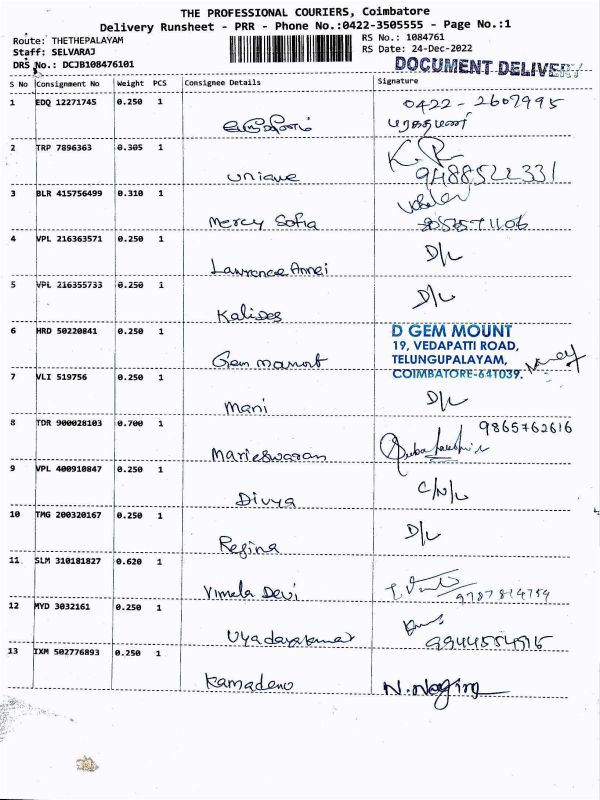 THE PROFESSIONAL COURIERS, Coimbatore
Delivery Runsheet - PRR - Phone No.:0422-3505555 - Page No.:1
Route: THETHEPALAYAM
RS No.: 1084761
Staff: SELVARAJ
RS Date: 24-Dec-2022
DRS No.: DCJB108476101
DOCUMENT DELIVERY
S No Consignment No Weight PCS Consignee Details Signature
1 EDQ 12271745 0.250 1
0422-2607995
மரகதமணி
2 TRP 7896363 0.305 1
Unique
9488522331
3 BLR 415756499 0.310 1
Mercy Sofia
4 VPL 216363571 0.250 1
Lawrence Amei D/L
5 VPL 216355733 0.250 1
Kalides D/L
6 HRD 50220841 0.250 1
Gem mount
D GEM MOUNT
19, VEDAPATTI ROAD,
TELUNGUPALAYAM,
COIMBATORE-641039.
7 VLI 519756 0.250 1
Mani D/L
8 TDR 900028103 0.700 1
9865762616
Marieswaran
9 VPL 400910847 0.250 1
Divya C/N/L
10 TMG 200320167 0.250 1
Regina D/L
11 SLM 310181827 0.620 1
Vimala Devi 9787814759
12 MYD 3032161 0.250 1
13 IXM 502776893 0.250 1
Kamadenu